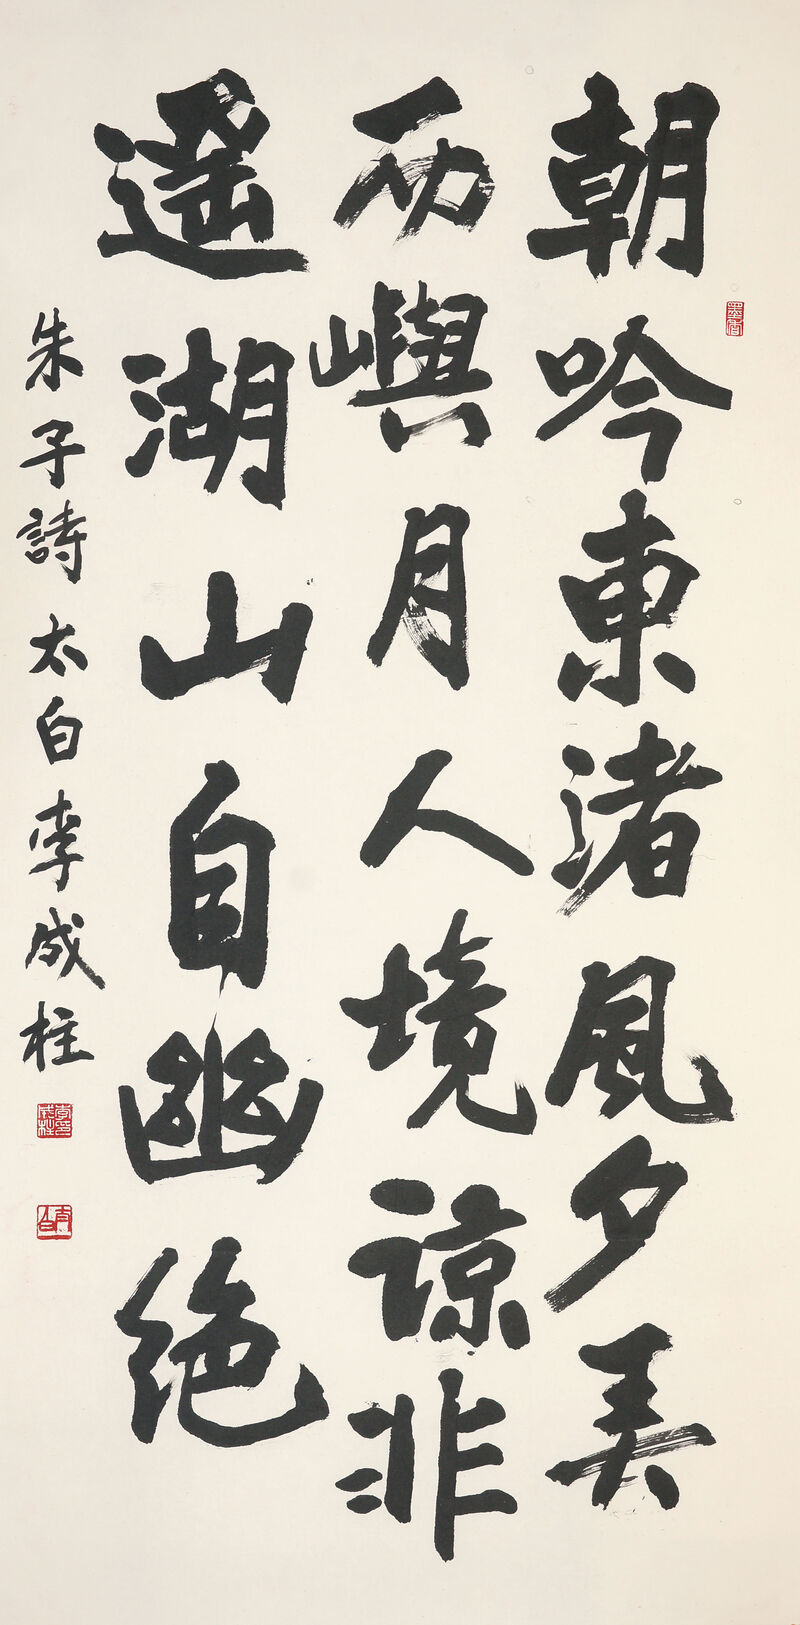 朝吟東渚風夕弄
西嶼月人境諒非
遙湖山自幽絶
朱子詩 太白 李成柱